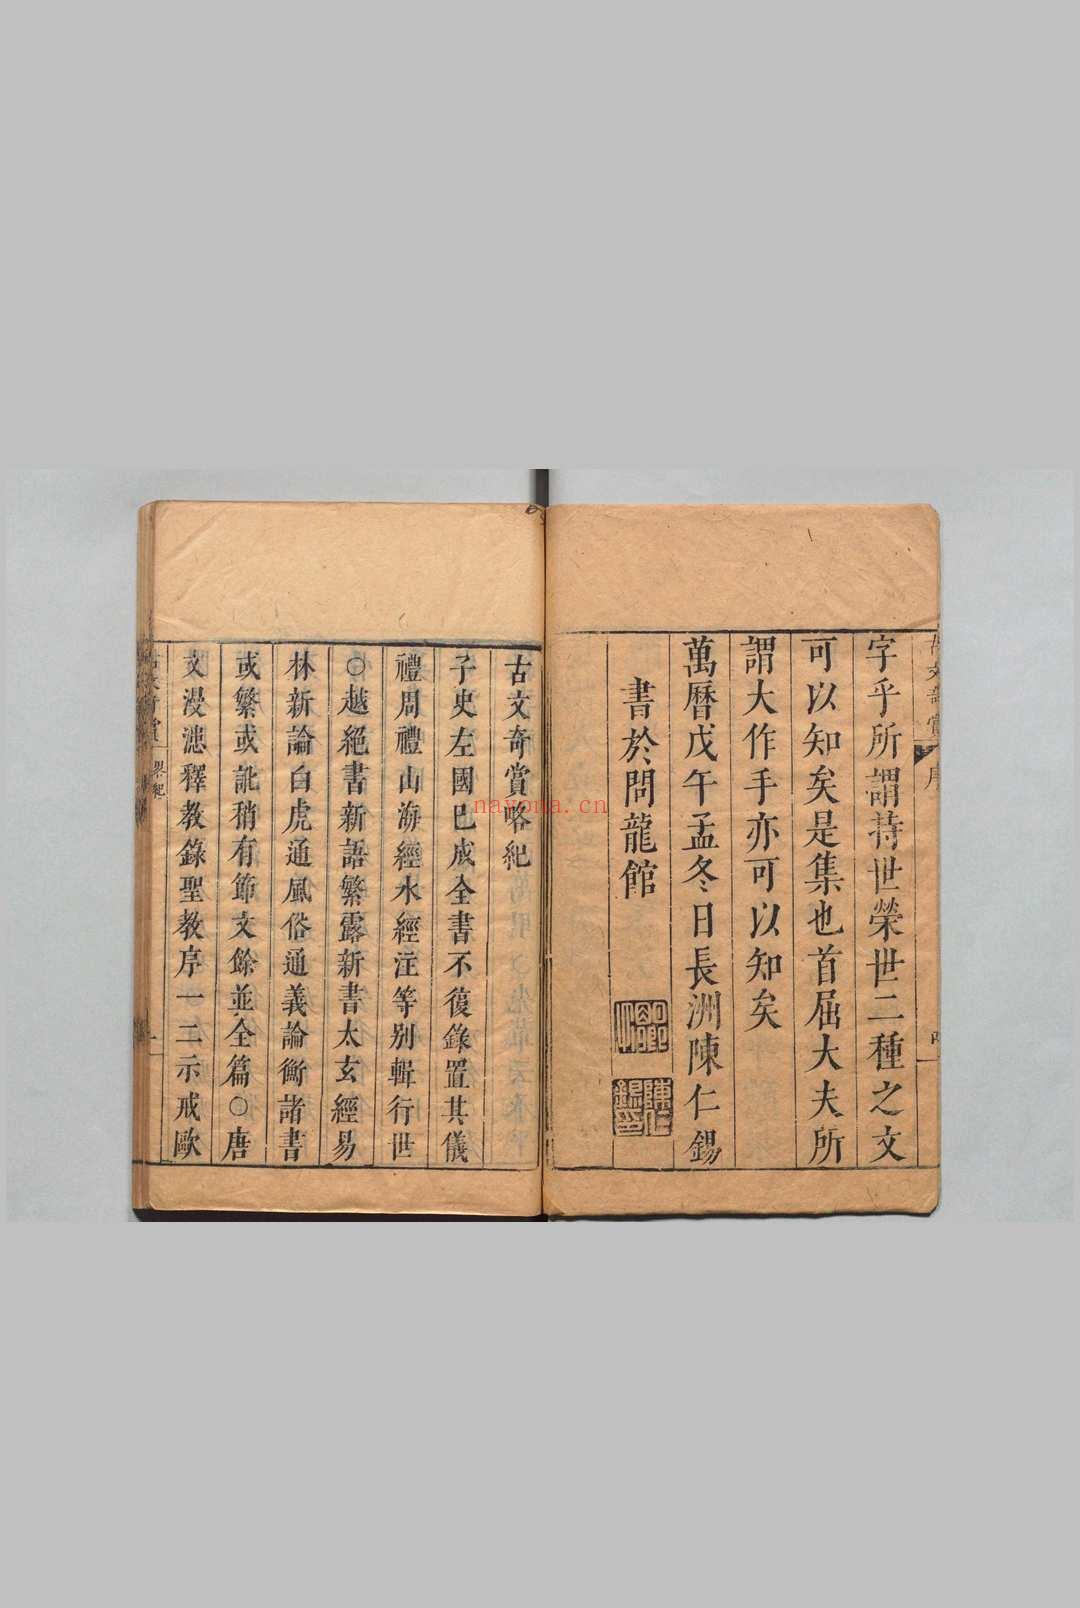 字乎所謂持世榮世二種之文
可以知矣是集也首屈大夫所
謂大作手亦可以知矣
萬曆戊午孟冬日長洲陳仁錫
書於問龍館
明卿
陳仁錫印
古文奇賞略紀
子史左國已成全書不復錄置其儀
禮周禮山海經水經注等別輯行世
○越絕書新語繁露新書太玄經易
林新論白虎通風俗通義論衡諸書
或繁或訛稍有節文餘並全篇○唐
文漫漶釋教錄聖教序一二示戒歐
古文奇賞
nayona.cn